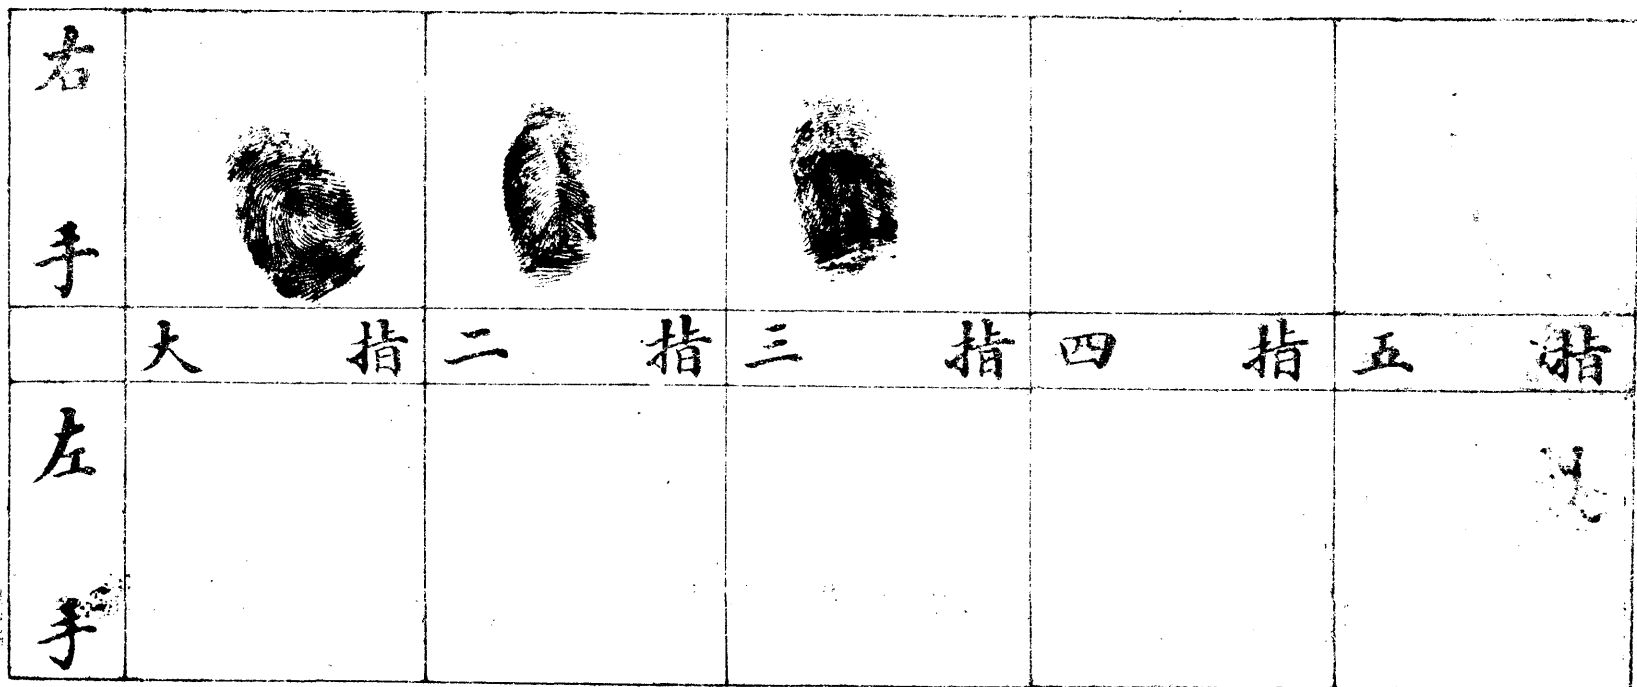 右手
大指 二指 三指 四指 五指
左手